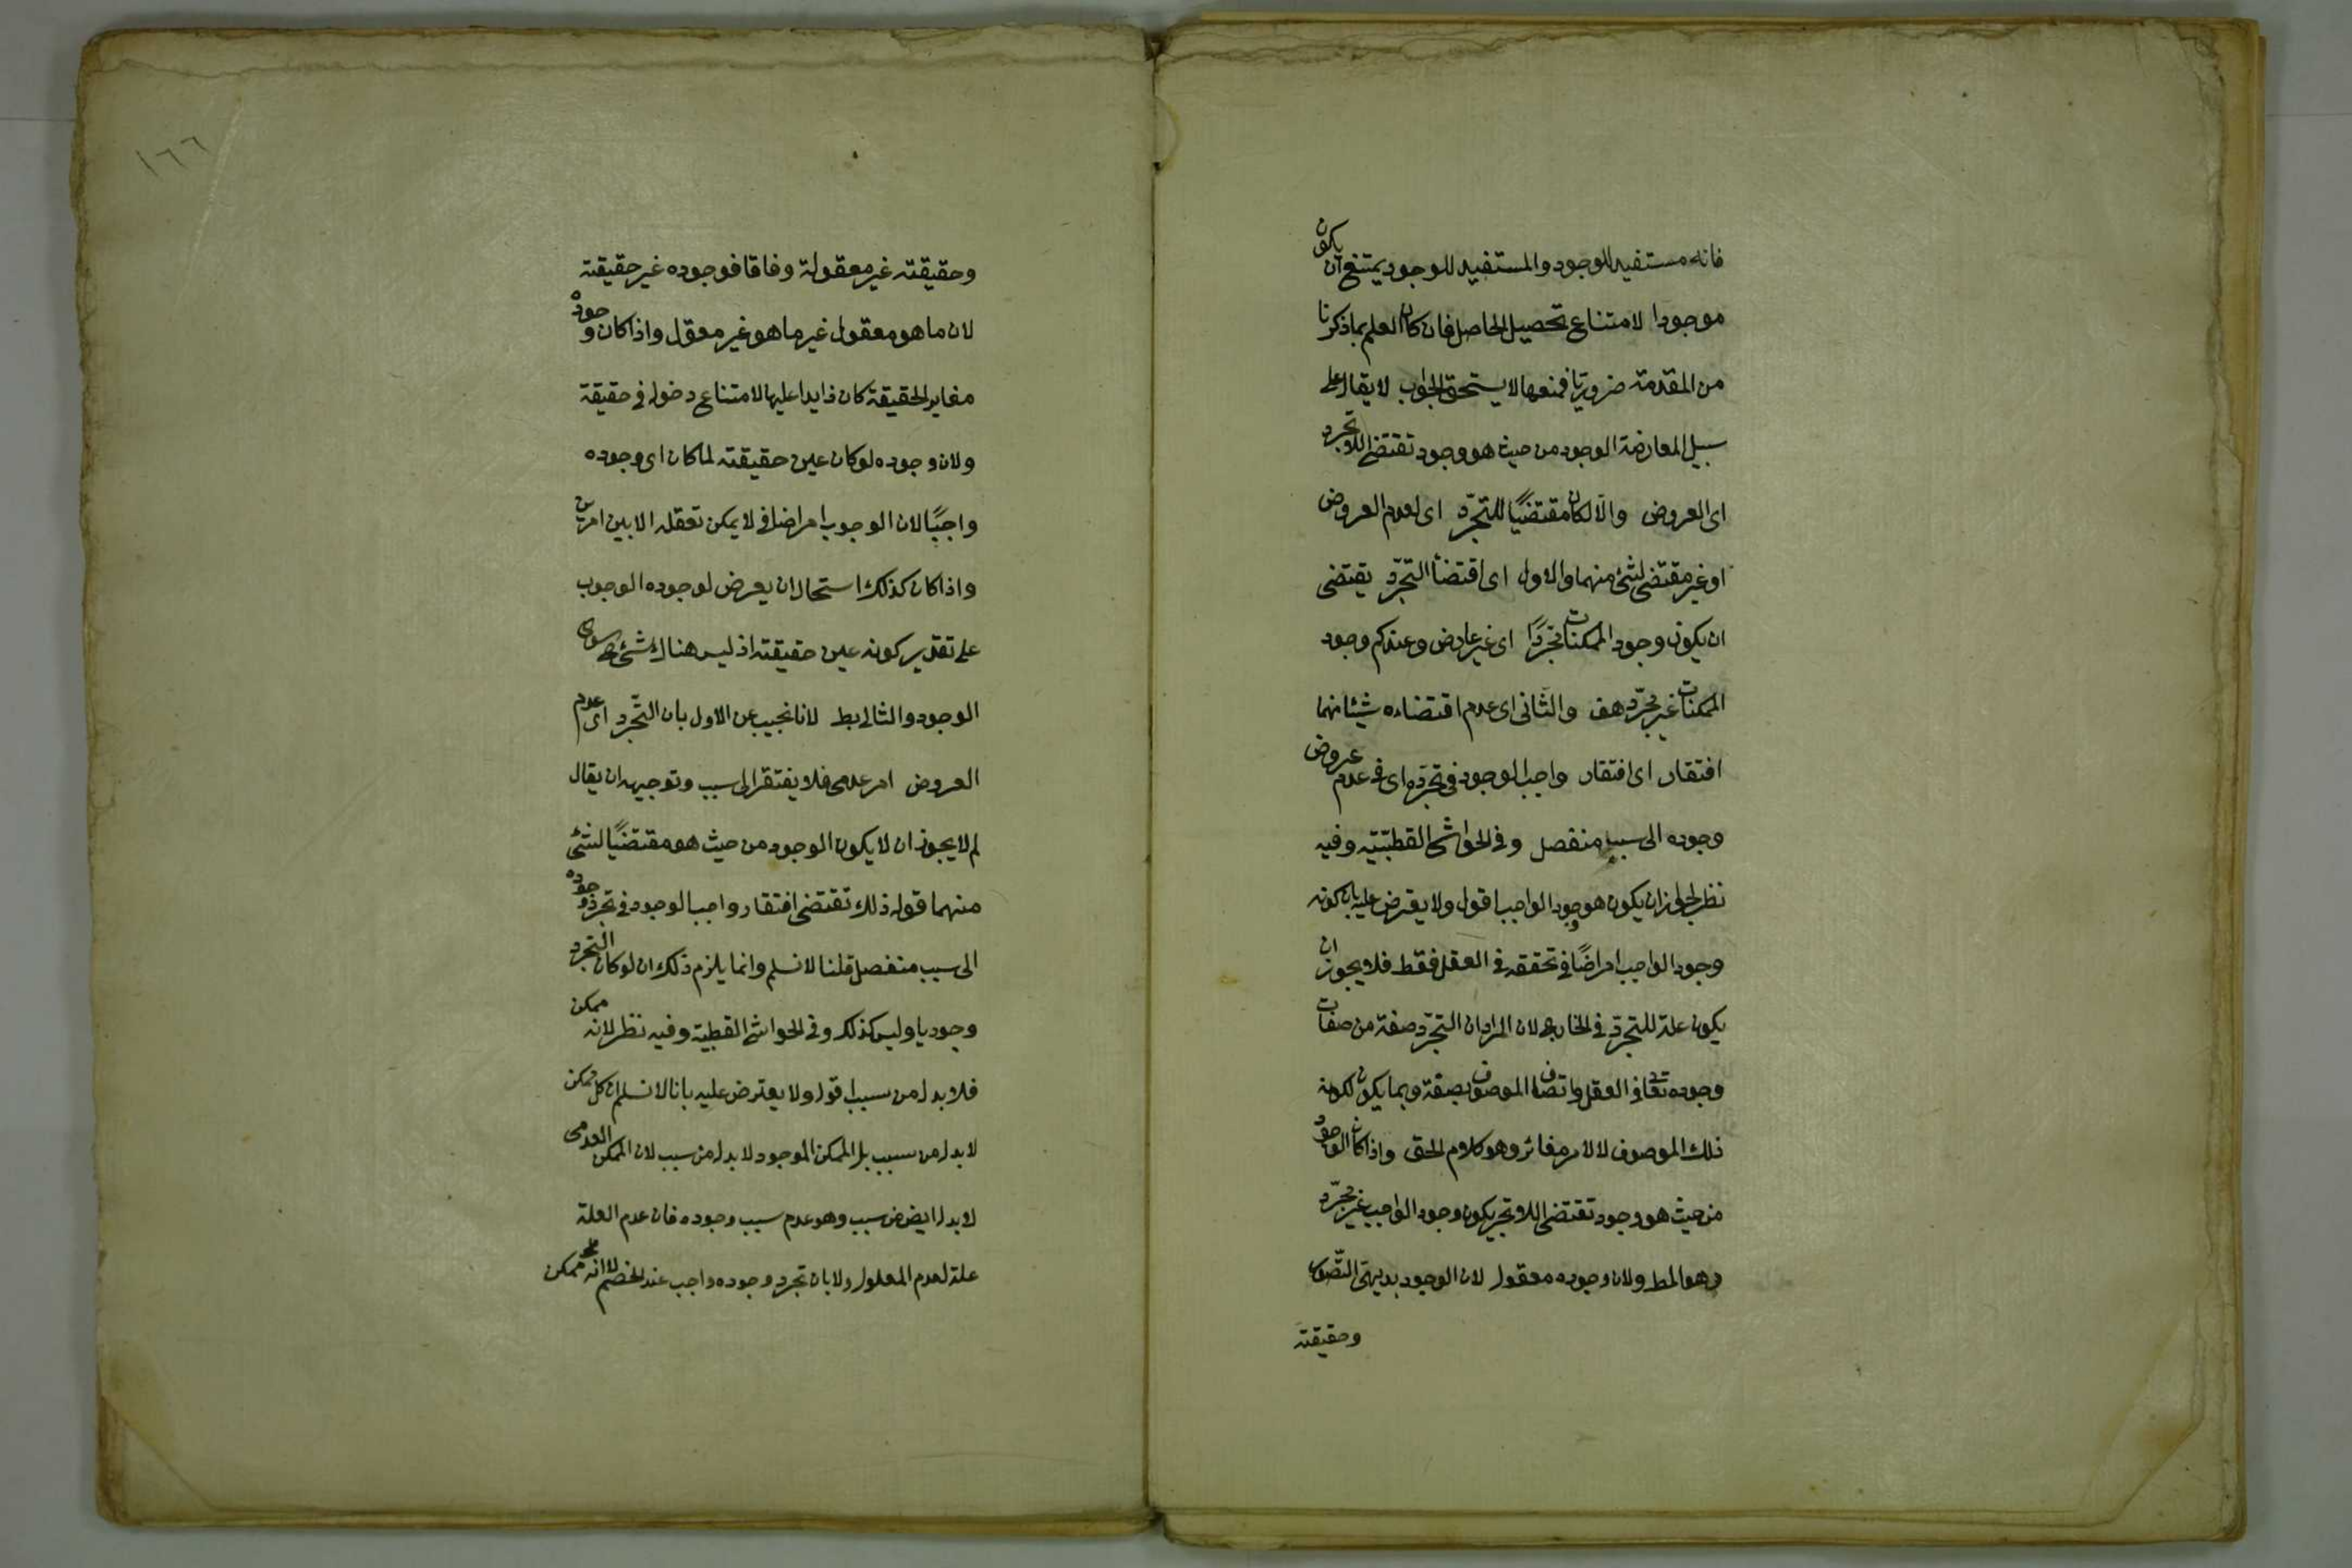 فانه مستفيد للوجود والمستفيد للوجود يمتنع ان يكون
موجودا لامتناع تحصيل الحاصل فان كان العلم بما ذكرنا
من المقدمة ضروريا فمنعها لا يستحق الجواب لا يقال على
سبيل المعارضة الوجود من حيث هو وجود تقتضى اللاتجرد
اى العروض والا لكان مقتضيًا للتجرّد اى لعدم العروض
او غير مقتضى لشئ منهما والاول اى اقتضاا التجرّد يقتضى
ان يكون وجود الممكنات مجرّدًا اى غير عارض وعندكم وجود
الممكنات غير مجرّد هف والثانى اى عدم اقتضاءه شيئا منهما
افتقار اى افتقار واجب الوجود فى تجرّده اى فى عدم عروض
وجوده الى سبب منفصل وفى الحواشى القطبيّة وفيه
نظر لجواز ان يكون هو وجود الواجب اقول ولا يعترض عليه بان كونه
وجود الواجب امراضًا فى تحققه فى العقل فقط فلا يجوز ان
يكون علة للتجرّد فى الخارجى لان المراد ان التجرّد صفة من صفات
وجوده تعا فى العقل واتصاف الموصوف بصفة وبما يكون لكونه
ذلك الموصوف لا لامر مغائر وهو كلام الحق واذا كان الوجود
من حيث هو وجود تقتضى اللاتجر يكون وجود الواجب غير مجرّد
وهو المط ولان وجوده معقول لان الوجود بديهى التّصور
وحقيقته
١٦٦
وحقيقته غير معقولة وفاقا فوجوده غير حقيقته
لان ما هو معقول غير ما هو غير معقول واذا كان وجوده
مغاير الحقيقة كان زايدا عليها لامتناع دخوله فى حقيقة
ولان وجوده لو كان عين حقيقته لما كان اى وجوده
واجبًا لان الوجوب امر اضافى لا يمكن تعقله الا بين امرين
واذا كان كذلك استحال ان يعرض لوجوده الوجوب
على تقدير كونه عين حقيقته اذ ليس هناك شئ سوى
الوجود والتالى بط لانا نجيب عن الاول بان التّجرد اى عدم
العروض امر عدمى فلا يفتقر الى سبب وتوجيهه ان يقال
لم لا يجوز ان لا يكون الوجود من حيث هو مقتضيًا لشئ
منهما قوله ذلك تقتضى افتقار واجب الوجود فى تجرد وجوده
الى سبب منفصل قلنا لا نسلم وانما يلزم ذلك ان لو كان التجرد
وجوديا وليس كذلك وفى الحواشى القطبية وفيه نظر لانه ممكن
فلا بد له من سبب اقول ولا يعترض عليه بانا لا نسلم ان كل ممكن
لا بد له من سبب بل الممكن الموجود لا بد له من سبب لان الممكن العدمى
لا بد له ايض من سبب وهو عدم سبب وجوده فان عدم العلة
علة لعدم المعلول ولا بان تجرد وجوده واجب عند الخصم لا انه ممكن